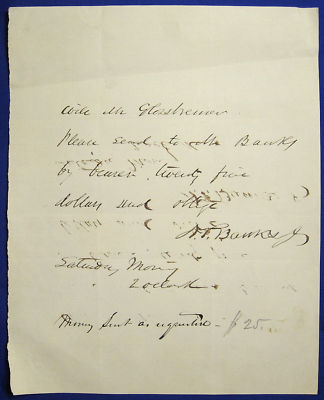 Will Mr Glossbrenner
Please send to Mr Banks
by bearer, twenty five
dollars and oblige
N.P. Banks Jr
Saturday Morng
2 oclock
Money sent as requested - $25.